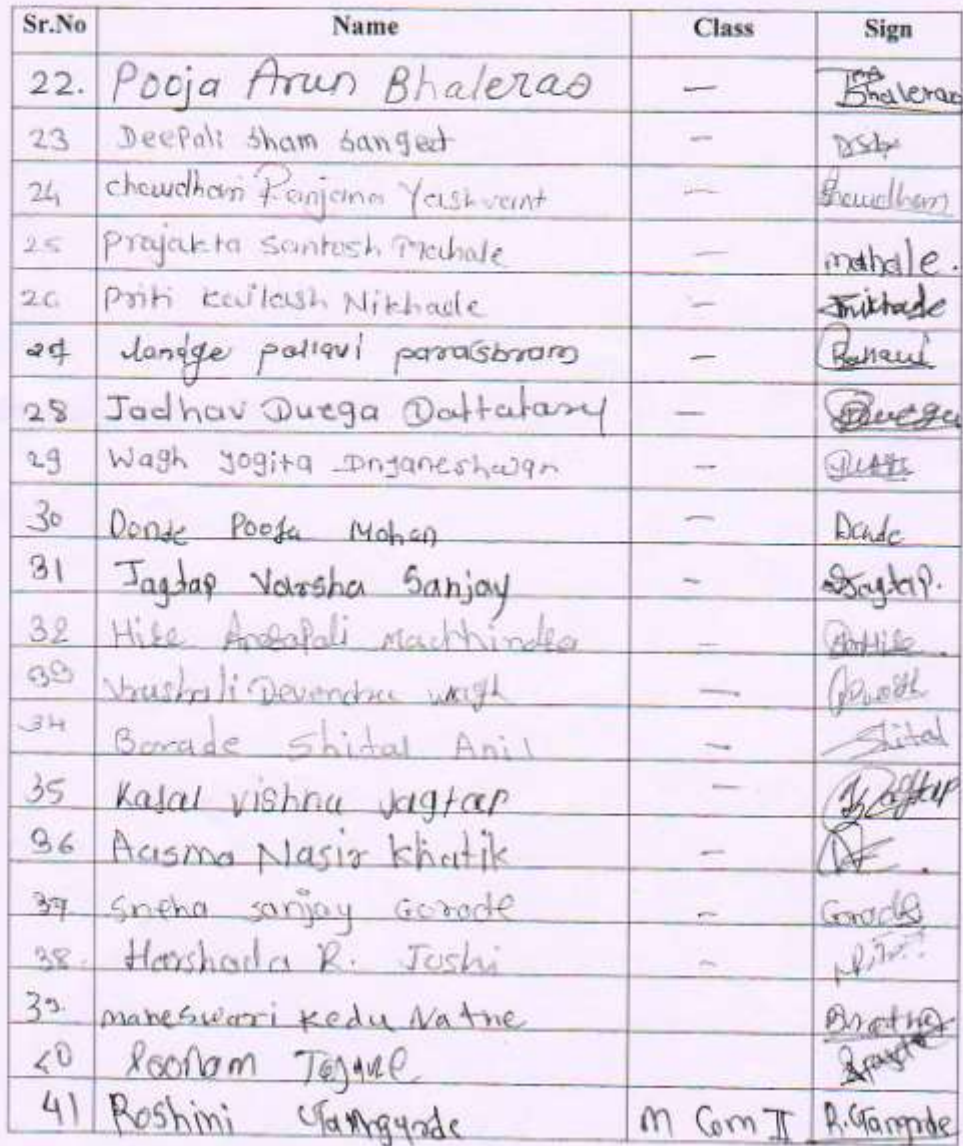 Sr.No Name Class Sign
22. Pooja Arun Bhalerao — Bhalerao
23 Deepali Sham Sangeet —
24 Choudhari Ranjana Yashvant — Choudhari
25 Prajakta Santosh Mahale — mahale.
26 Priti Kailash Nikhade — Nikhade
27 Landge pallavi parasbram — Pallavi
28 Jadhav Durga Dattatary — Durga
29 Wagh yogita Dnyaneshwar —
30 Donde Pooja Mohan — Donde
31 Jagtap Varsha Sanjay — Jagtap.
32 Hile Machhindra —
33 Vrushali Devendra wagh — wagh
34 Borade Shital Anil — Shital
35 Kajal vishnu Jagtap — Jagtap
36 Aasma Nasir Khatik —
37. Sneha sanjay Gorade — Gorade
38. Harshada R. Joshi —
39. maheswari Kedu Natne
40 Poonam
41 Roshini M Com II